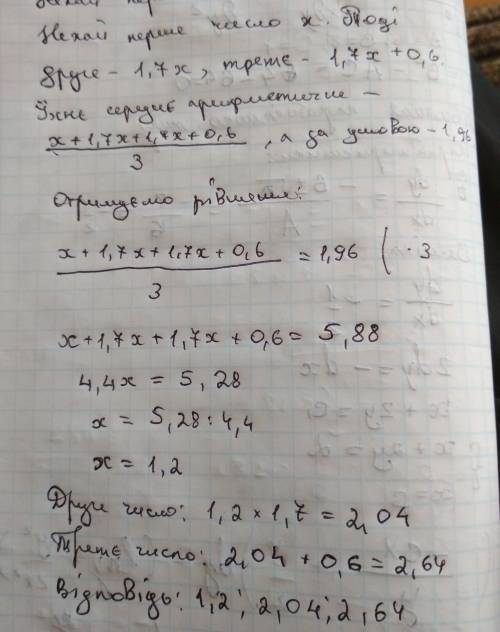 Нехай пер
Нехай перше число x. Тоді
друге - 1,7x, третє - 1,7x + 0,6.
Їхнє середнє арифметичне -
x + 1,7x + 1,7x + 0,6
3
, а за умовою - 1,96
Отримуємо рівняння:
x + 1,7x + 1,7x + 0,6
3
= 1,96 | · 3
x + 1,7x + 1,7x + 0,6 = 5,88
4,4x = 5,28
x = 5,28 : 4,4
x = 1,2
Друге число: 1,2 × 1,7 = 2,04
Третє число: 2,04 + 0,6 = 2,64
Відповідь: 1,2; 2,04; 2,64